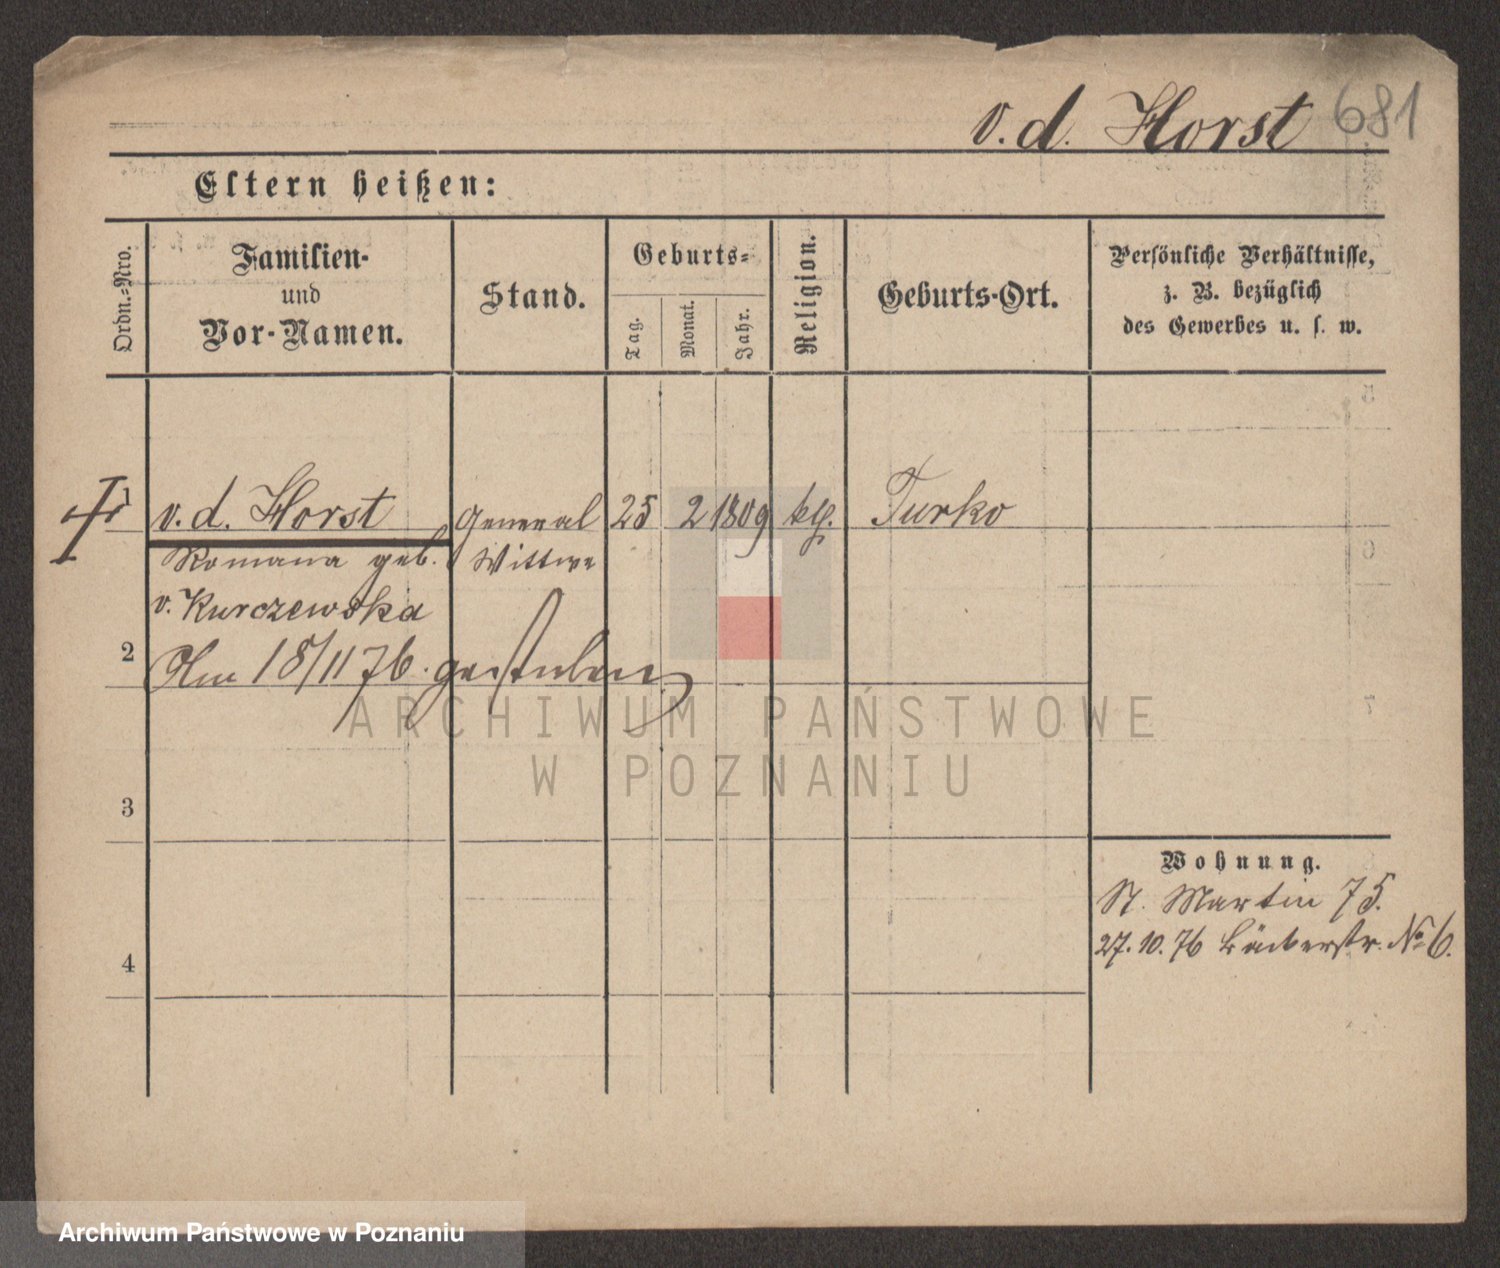 v. d. Horst 681
Eltern heißen:
Ordn.-Nro.
Familien-
und
Vor-Namen.
Stand.
Geburts-
Tag.
Monat.
Jahr.
Religion.
Geburts-Ort.
Persönliche Verhältnisse,
z. B. bezüglich
des Gewerbes u. s. w.
1 v. d. Horst General 25 2 1809 kth. Turko
Romana geb. Wittwe
v. Kurczewska
2 18/11 76. gestorben
3
4
Wohnung.
St. Martin 75.
27. 10. 76 Bäckerstr. No 6.
ARCHIWUM PAŃSTWOWE
W POZNANIU
Archiwum Państwowe w Poznaniu